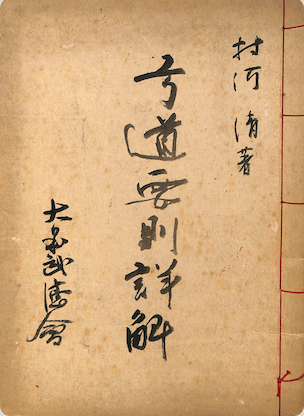 村河清著
弓道要則詳解
大日本武徳會